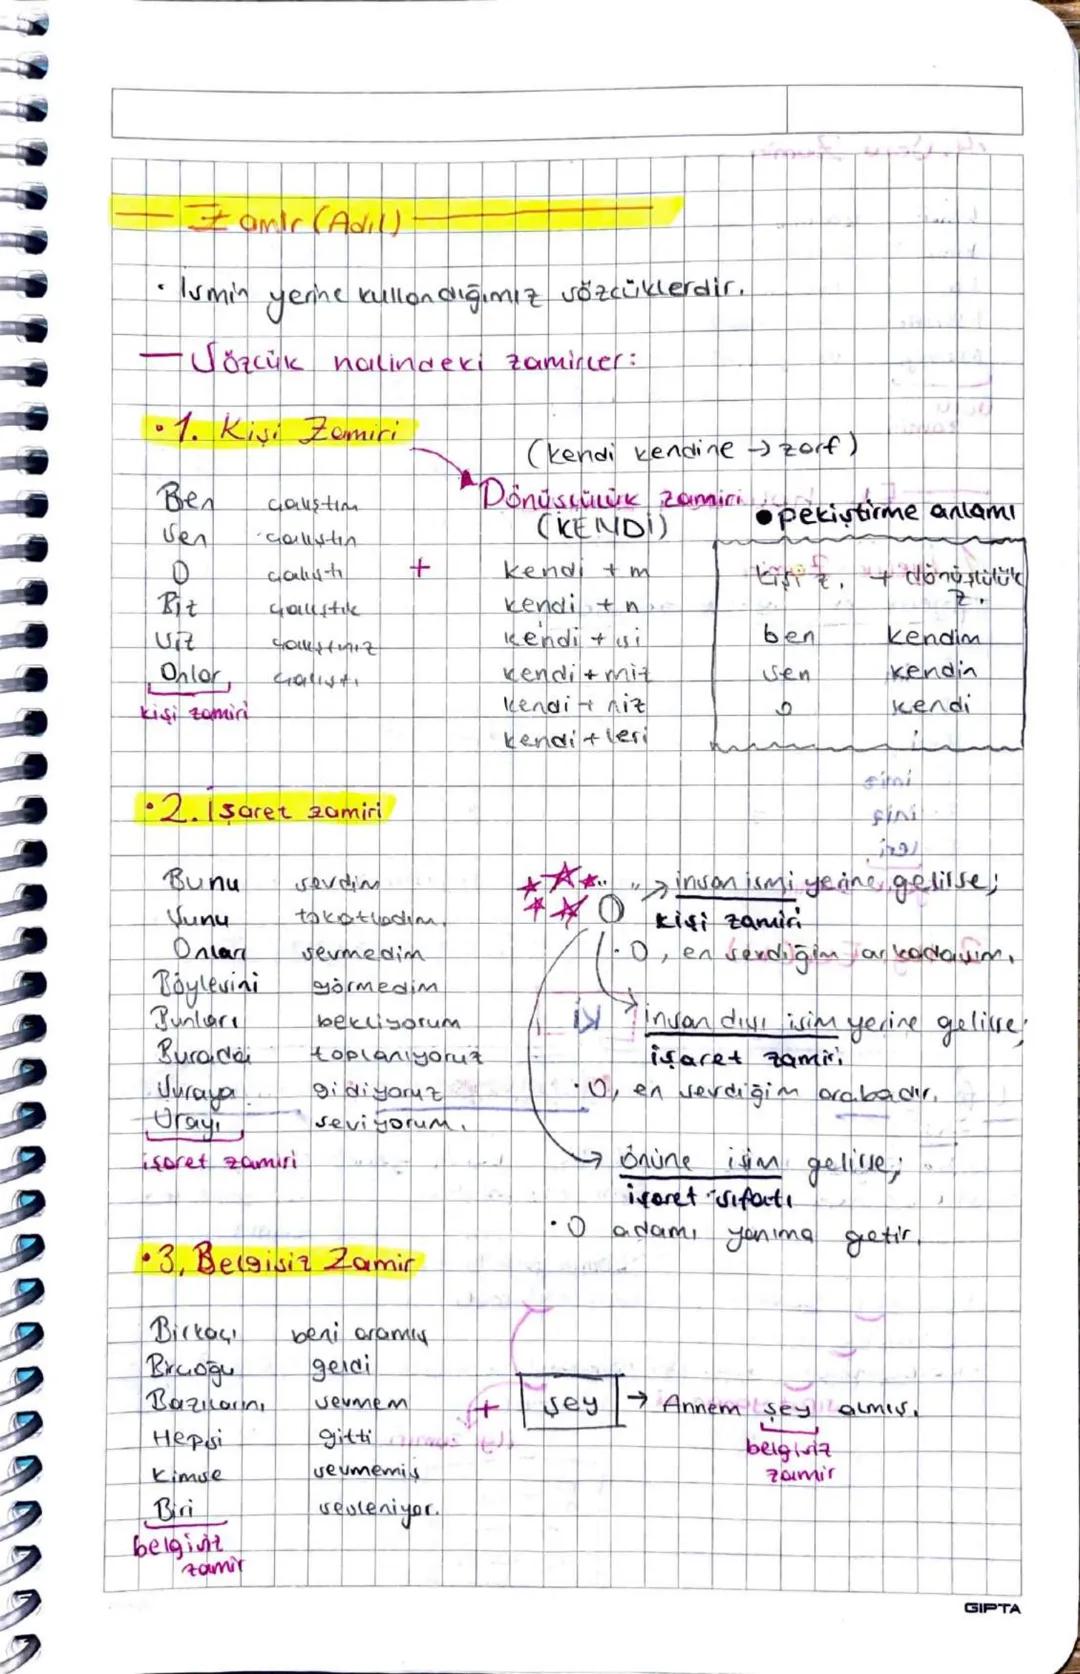 Zamir (Adıl)
• İsmin yerine kullandığımız sözcüklerdir.
— Sözcük halindeki zamirler:
•1. Kişi Zamiri
(kendi kendine → zarf)
Dönüşlülük zamiri
(KENDİ)
Ben çalıştım
Sen çalıştın
O çalıştı
Biz çalıştık
Siz çalıştınız
Onlar çalıştı
kişi zamiri
+
kendi + m
kendi + n
kendi + si
kendi + miz
kendi + niz
kendi + leri
• pekiştirme anlamı
kişi z. + dönüşlülük z.
ben kendim
sen kendin
o kendi
•2. İşaret zamiri
Bunu sevdim
Şunu tokatladım.
Onları sevmedim
Böylesini görmedim
Bunları bekliyorum
Burada toplanıyoruz
Şuraya gidiyoruz
Orayı seviyorum.
işaret zamiri
O
→ insan ismi yerine gelirse;
kişi zamiri
• O, en sevdiğim arkadaşım.
→ insan dışı isim yerine gelirse;
işaret zamiri
• O, en sevdiğim arabadır.
→ önüne isim gelirse;
işaret sıfatı
• O adamı yanıma getir.
•3. Belgisiz Zamir
Birkaçı beni aramış
Birçoğu geldi
Bazılarını sevmem
Hepsi gitti
Kimse sevmemiş
Biri sesleniyor.
belgisiz
zamir
+ şey → Annem şey almış.
belgisiz
zamir
GIPTA